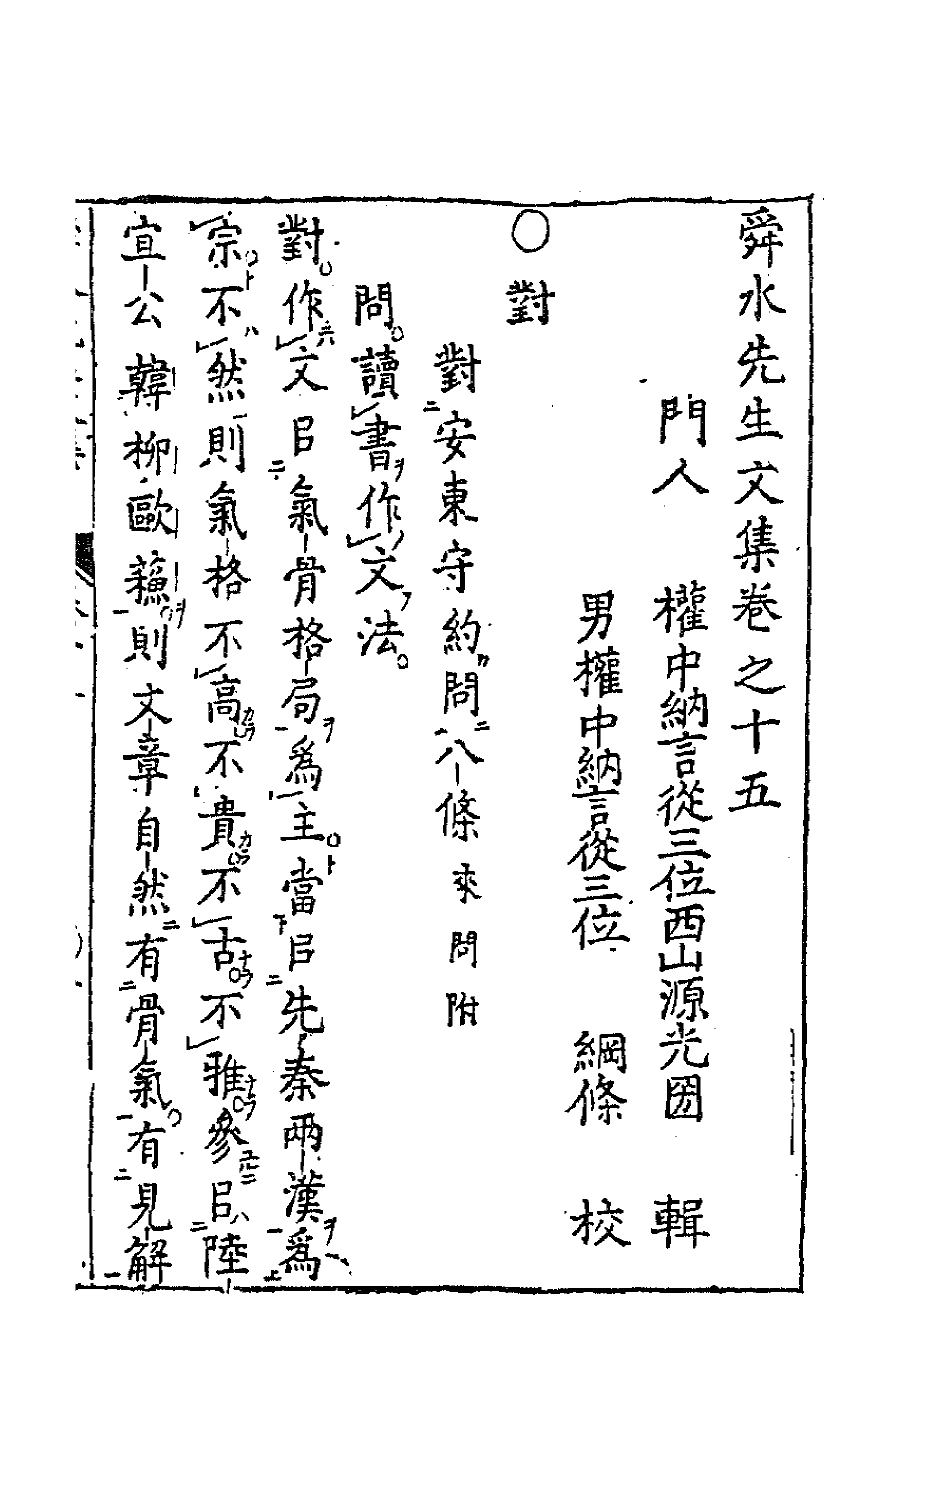 舜水先生文集卷之十五
門人 權中納言從三位西山源光圀 輯
男權中納言從三位 綱條 校
○對
對安東守約問八條來問附
問讀書作文法
對作文㠯氣骨格局爲主當㠯先秦兩漢爲
宗不然則氣格不高不貴不古不雅參㠯陸
宣公韓柳歐蘓則文章自然有骨氣有見解